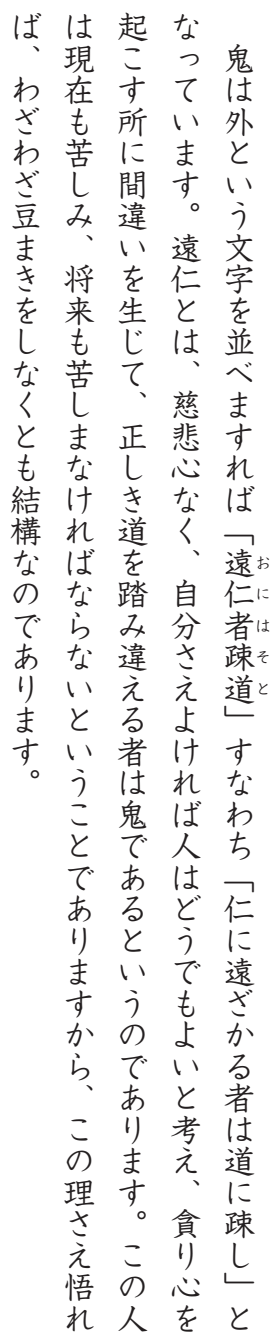 鬼は外という文字を並べますれば「遠仁者疎道」すなわち「仁に遠ざかる者は道に疎し」と
なっています。遠仁とは、慈悲心なく、自分さえよければ人はどうでもよいと考え、貪り心を
起こす所に間違いを生じて、正しき道を踏み違える者は鬼であるというのであります。この人
は現在も苦しみ、将来も苦しまなければならないということでありますから、この理さえ悟れ
ば、わざわざ豆まきをしなくとも結構なのであります。
おにはそと